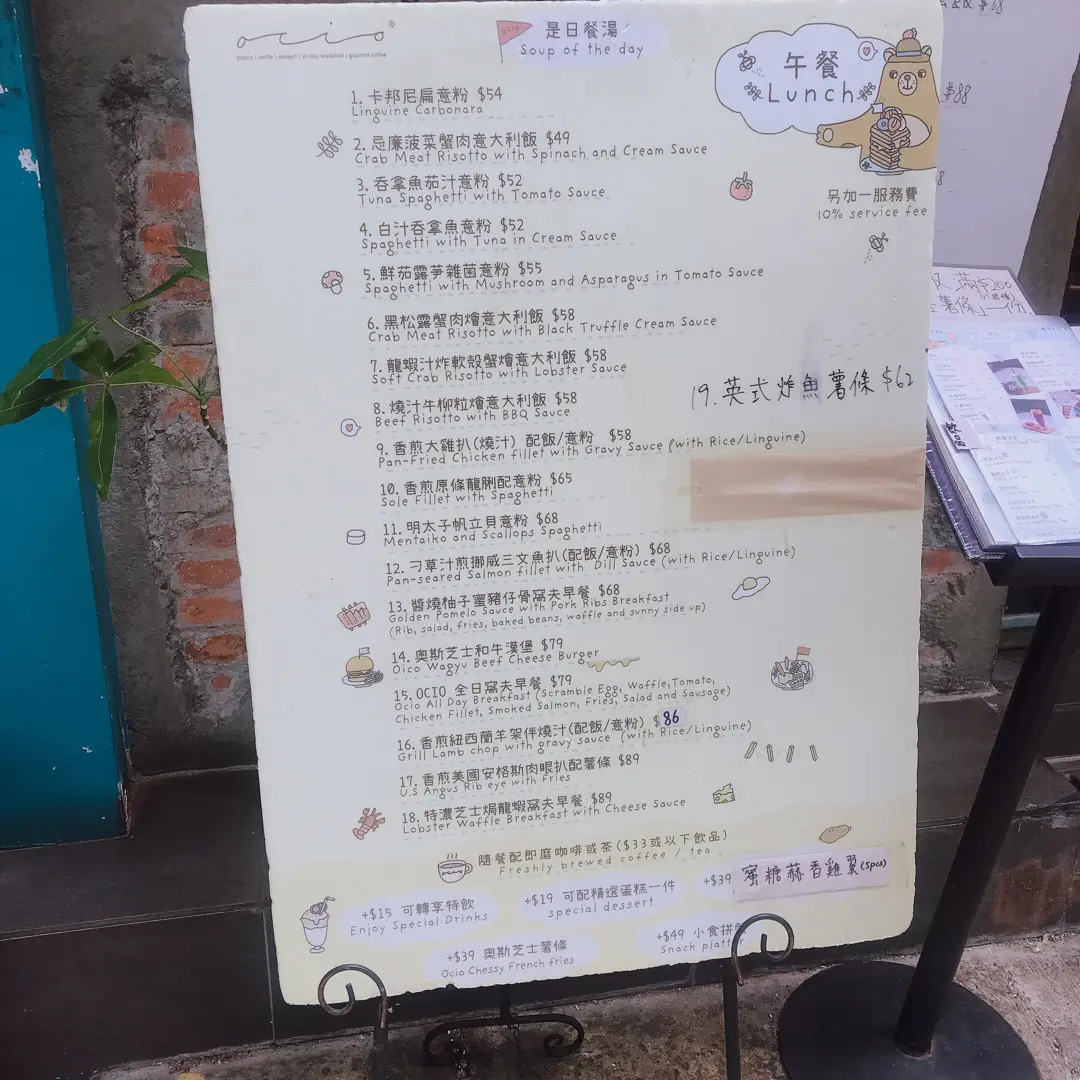 ocio
pastry | waffle | dessert | all-day breakfast | gourmet coffee
ocio
是日餐湯
Soup of the day
午餐
Lunch
1. 卡邦尼扁意粉 $54
Linguine Carbonara
2. 忌廉菠菜蟹肉意大利飯 $49
Crab Meat Risotto with Spinach and Cream Sauce
3. 吞拿魚茄汁意粉 $52
Tuna Spaghetti with Tomato Sauce
4. 白汁吞拿魚意粉 $52
Spaghetti with Tuna in Cream Sauce
5. 鮮茄露筍雜菌意粉 $55
Spaghetti with Mushroom and Asparagus in Tomato Sauce
6. 黑松露蟹肉燴意大利飯 $58
Crab Meat Risotto with Black Truffle Cream Sauce
7. 龍蝦汁炸軟殼蟹燴意大利飯 $58
Soft Crab Risotto with Lobster Sauce
8. 燒汁牛柳粒燴意大利飯 $58
Beef Risotto with BBQ Sauce
9. 香煎大雞扒(燒汁) 配飯/意粉 $58
Pan-Fried Chicken fillet with Gravy Sauce (with Rice/Linguine)
10. 香煎原條龍脷配意粉 $65
Sole Fillet with Spaghetti
11. 明太子帆立貝意粉 $68
Mentaiko and Scallops Spaghetti
12. 刁草汁煎挪威三文魚扒(配飯/意粉) $68
Pan-seared Salmon fillet with Dill Sauce (with Rice/Linguine)
13. 醬燒柚子蜜豬仔骨窩夫早餐 $68
Golden Pomelo Sauce with Pork Ribs Breakfast
(Rib, salad, fries, baked beans, waffle and sunny side up)
14. 奧斯芝士和牛漢堡 $79
Oico Wagyu Beef Cheese Burger
15. OCIO 全日窩夫早餐 $79
Ocio All Day Breakfast (Scramble Egg, Waffle,Tomato,
Chicken Fillet, Smoked Salmon, Fries, Salad and Sausage)
16. 香煎紐西蘭羊架伴燒汁(配飯/意粉) $86
Grill Lamb chop with gravy sauce (with Rice/Linguine)
17. 香煎美國安格斯肉眼扒配薯條 $89
U.S Angus Rib eye with Fries
18. 特濃芝士焗龍蝦窩夫早餐 $89
Lobster Waffle Breakfast with Cheese Sauce
另加一服務費
10% service fee
19. 英式炸魚薯條 $62
隨餐配即磨咖啡或茶($33或以下飲品)
Freshly brewed coffee / tea
+$15 可轉享特飲
Enjoy Special Drinks
+$19 可配精選蛋糕一件
special dessert
+$39 蜜糖蒜香雞翼(5pcs)
+$39 奧斯芝士薯條
Ocio Chessy French fries
+$49 小食拼
Snack platt
$88
滿$200
薯條」一份
飲品